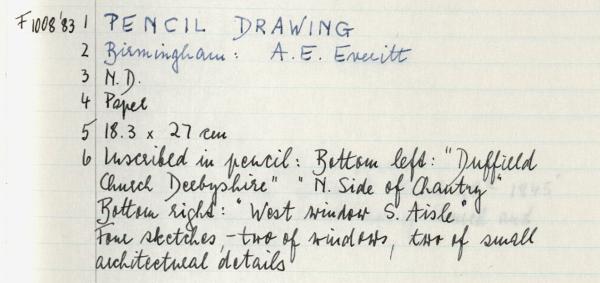 F1008'83 1 PENCIL DRAWING
2 Birmingham: A.E. Everitt
3 N.D.
4 Paper
5 18.3 x 27 cm
6 Inscribed in pencil: Bottom left: "Duffield
Church Derbyshire" "N. Side of Chantry"
Bottom right: "West window S. Aisle"
Four sketches, - two of windows, two of small
architectural details